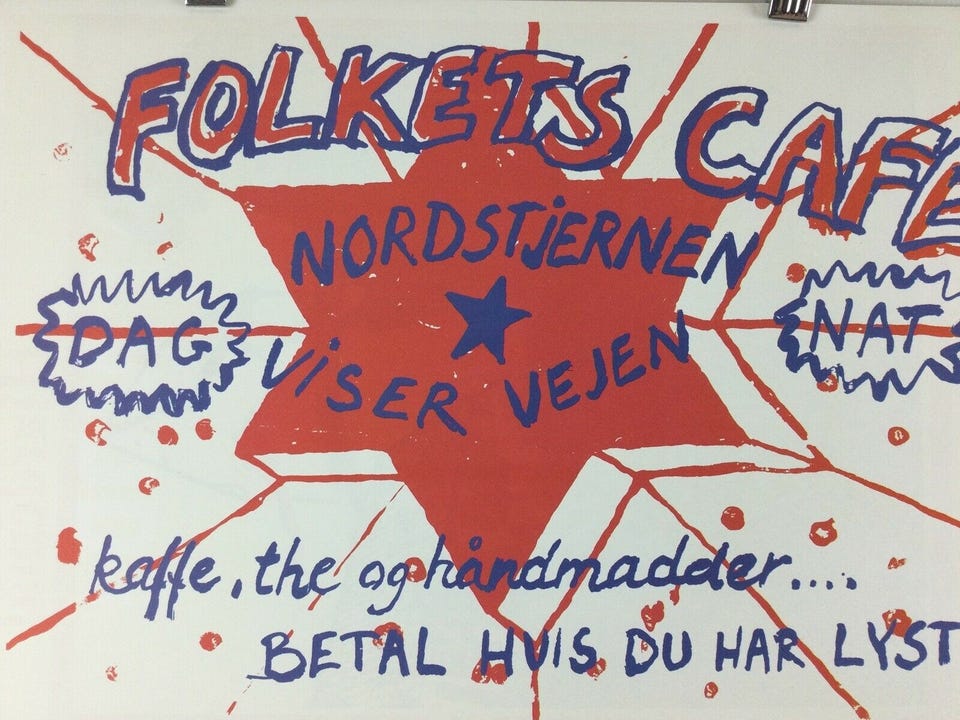 FOLKETS CAFE
NORDSTJERNEN
DAG
NAT
VISER VEJEN
kaffe, the og håndmadder....
BETAL HVIS DU HAR LYST